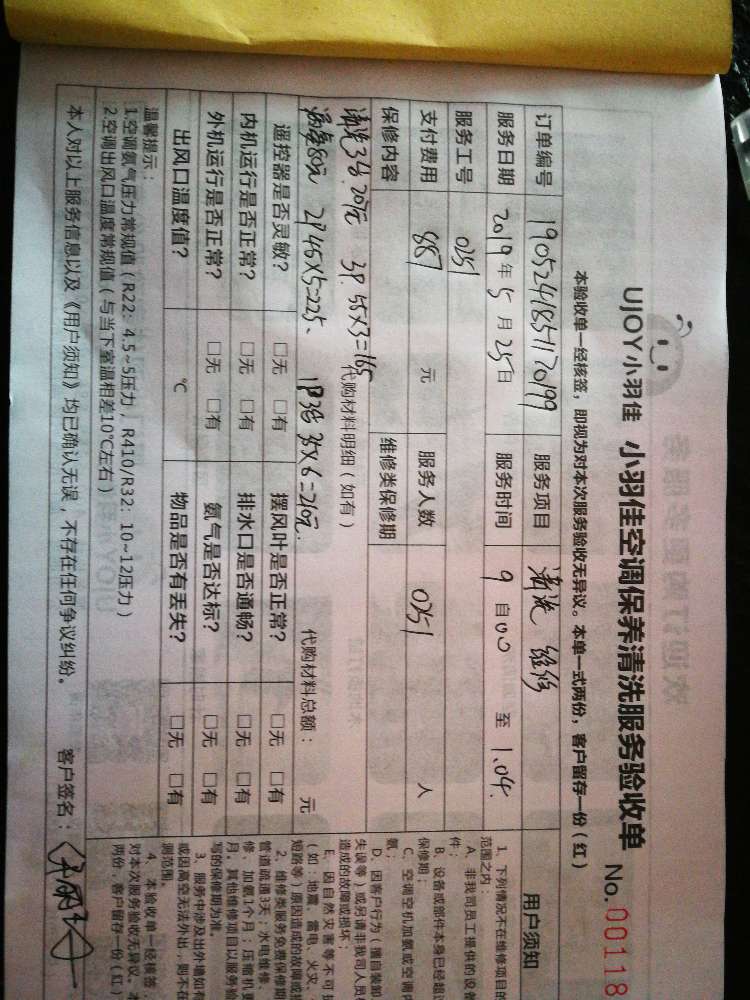 UJOY小羽佳 小羽佳空调保养清洗服务验收单 No.00118
本验收单一经核签，即视为对本次服务验收无异议。本单一式两份，客户留存一份（红）
订单编号 190524185170199 服务项目 清洗 维修
服务日期 2019年5月25日 服务时间 9自00至1.04.
服务工号 0251
支付费用 887 元 服务人数 0251 人
保修内容 维修类保修期
代购材料明细（如有）
3P. 55X3=165
2P 45X5=225、 35X6=210元. 代购材料总额： 元
遥控器是否灵敏？ □无 □有 摆风叶是否正常？ □无 □有
内机运行是否正常？ □无 □有 排水口是否通畅？ □无 □有
外机运行是否正常？ □无 □有 氨气是否达标？ □无 □有
出风口温度值？ ℃ 物品是否有丢失？ □无 □有
温馨提示：
1.空调氨气压力常规值（R22：4.5~5压力，R410/R32：10~12压力）
2.空调出风口温度常规值（与当下室温相差10℃左右）
本人对以上服务信息以及《用户须知》均已确认无误，不存在任何争议纠纷。 客户签名：
用户须知
1、下列情况不在维修项目的
范围之内：
A、非我司员工提供的设备
件；
B、设备或部件本身已经超过
保修期；
C、空调空机加氨或空调内
氨；
D、因客户行为（擅自装卸
失误等）或另请非我司人员
造成的故障或损坏；
E、因自然灾害等不可抗
（如：地震、雷电、火灾、
短路等）原因造成的故障或损
2、维修类服务免费保修期
管道疏通3天；水电维修、
修、加氨1个月；压缩机更
月。其他维修项目以服务验
写的保修期为准。
3、服务中涉及出外墙如有
或因高空无法外出，则不在
测范围。
4、本验收单一经核签，
对本次服务验收无异议。本
两份，客户留存一份（红）